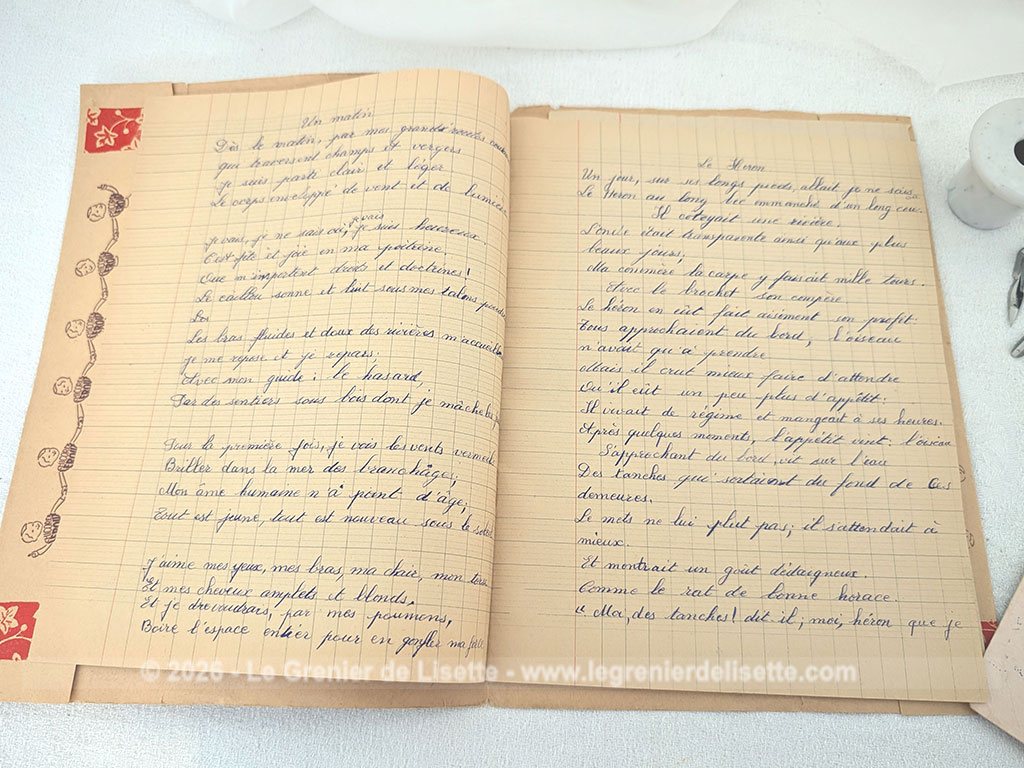 Un matin
Dès le matin, par mes grand's routes
qui traversent champs et vergers
Je suis parti clair et léger
Le corps enveloppé de vent et de lumière
je vais
Je vais, je ne sais où, je suis heureux.
C'est fête et joie en ma poitrine
Que m'importent droits et doctrines!
Le caillou sonne et luit sous mes talons poudreux
Les bras fluides et doux des rivières m'accueillent
je me repose et je repars;
Avec mon guide: le hasard
Par des sentiers sous bois dont je mâche les
Pour la première fois, je vois les vents vermeils
Briller dans la mer des branchages;
Mon âme humaine n'a point d'âge;
Tout est jeune, tout est nouveau sous le soleil
J'aime mes yeux, mes bras, ma chair, mon torse
Et mes cheveux amplets et blonds.
Et je drevoudrais, par mes poumons,
Boire l'espace entier pour en gonfler ma force
Le Héron
Un jour, sur ses longs pieds, allait, je ne sais où
Le Héron au long bec emmanché d'un long cou.
Il cotoyait une rivière.
L'onde était transparente ainsi qu'aux plus
beaux jours;
Ma commère la carpe y faisait mille tours.
Avec le brochet son compère.
Le héron en eût fait aisément son profit:
Tous approchaient du bord, l'oiseau
n'avait qu'à prendre
Mais il crut mieux faire d'attendre
Qu'il eût un peu plus d'appétit:
Il vivait de régime et mangeait à ses heures.
Après quelques moments, l'appétit vint. l'oiseau
S'approchant du bord, vit sur l'eau
Des tanches qui sortaient du fond de ces
demeures.
Le mets ne lui plut pas; il s'attendait à
mieux.
Et montrait un goût dédaigneux.
Comme le rat de bonne horace.
" Ma, des tanches! dit il, moi, héron que je
© 2026 - Le Grenier de Lisette - www.legrenierdelisette.com